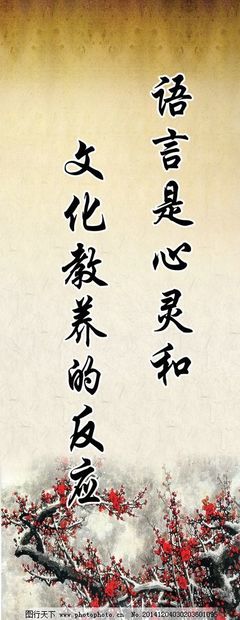 语言是心灵和
文化教养的反应
图行天下 www.photophoto.cn No.20141204030203601095